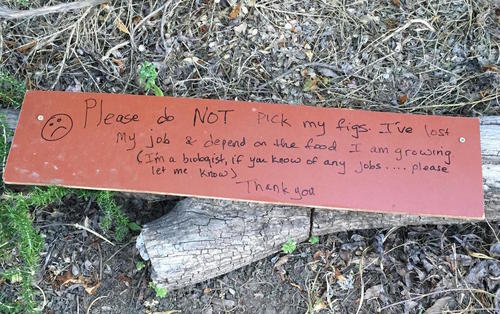 Please do NOT pick my figs. I've lost
my job & depend on the food I am growing
(I'm a biologist, if you know of any jobs.... please
let me know)
Thank you